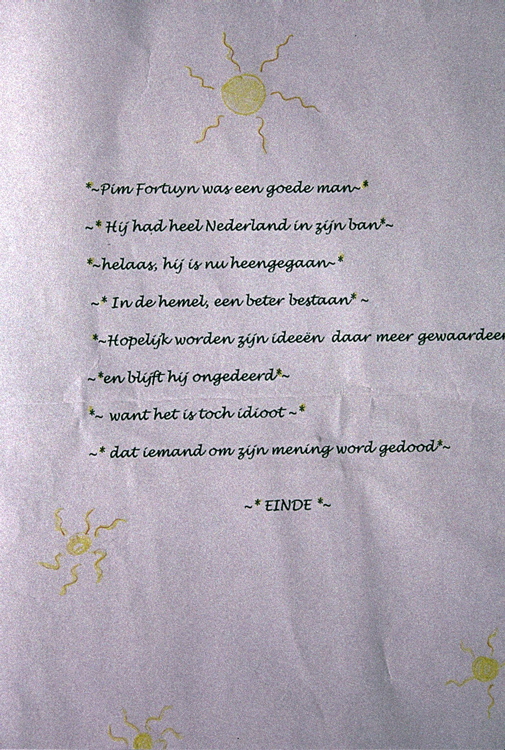 *~Pim Fortuyn was een goede man~*
~* Hij had heel Nederland in zijn ban*~
*~helaas, hij is nu heengegaan~*
~* In de hemel, een beter bestaan* ~
*~Hopelijk worden zijn ideeën daar meer gewaardeer
~*en blijft hij ongedeerd*~
*~ want het is toch idioot ~*
~* dat iemand om zijn mening word gedood*~
~* EINDE *~